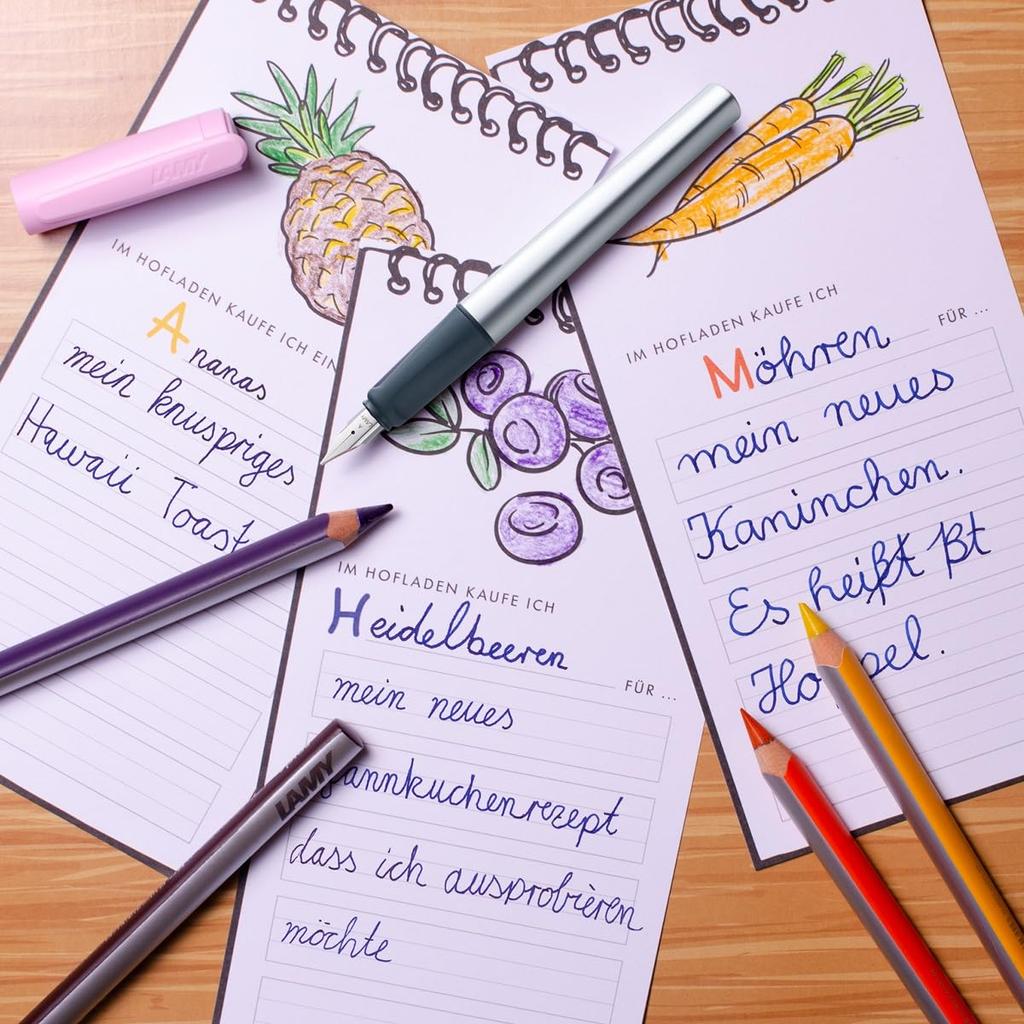 LAMY
IM HOFLADEN KAUFE ICH EIN
Ananas
mein knuspriges
Hawaii Toast
IM HOFLADEN KAUFE ICH
Heidelbeeren
FÜR ...
mein neues
annkuchenrezept
dass ich ausprobieren
möchte
LAMY
IM HOFLADEN KAUFE ICH
Möhren
FÜR ...
mein neues
Kaninchen.
Es heißt
Ho pel.